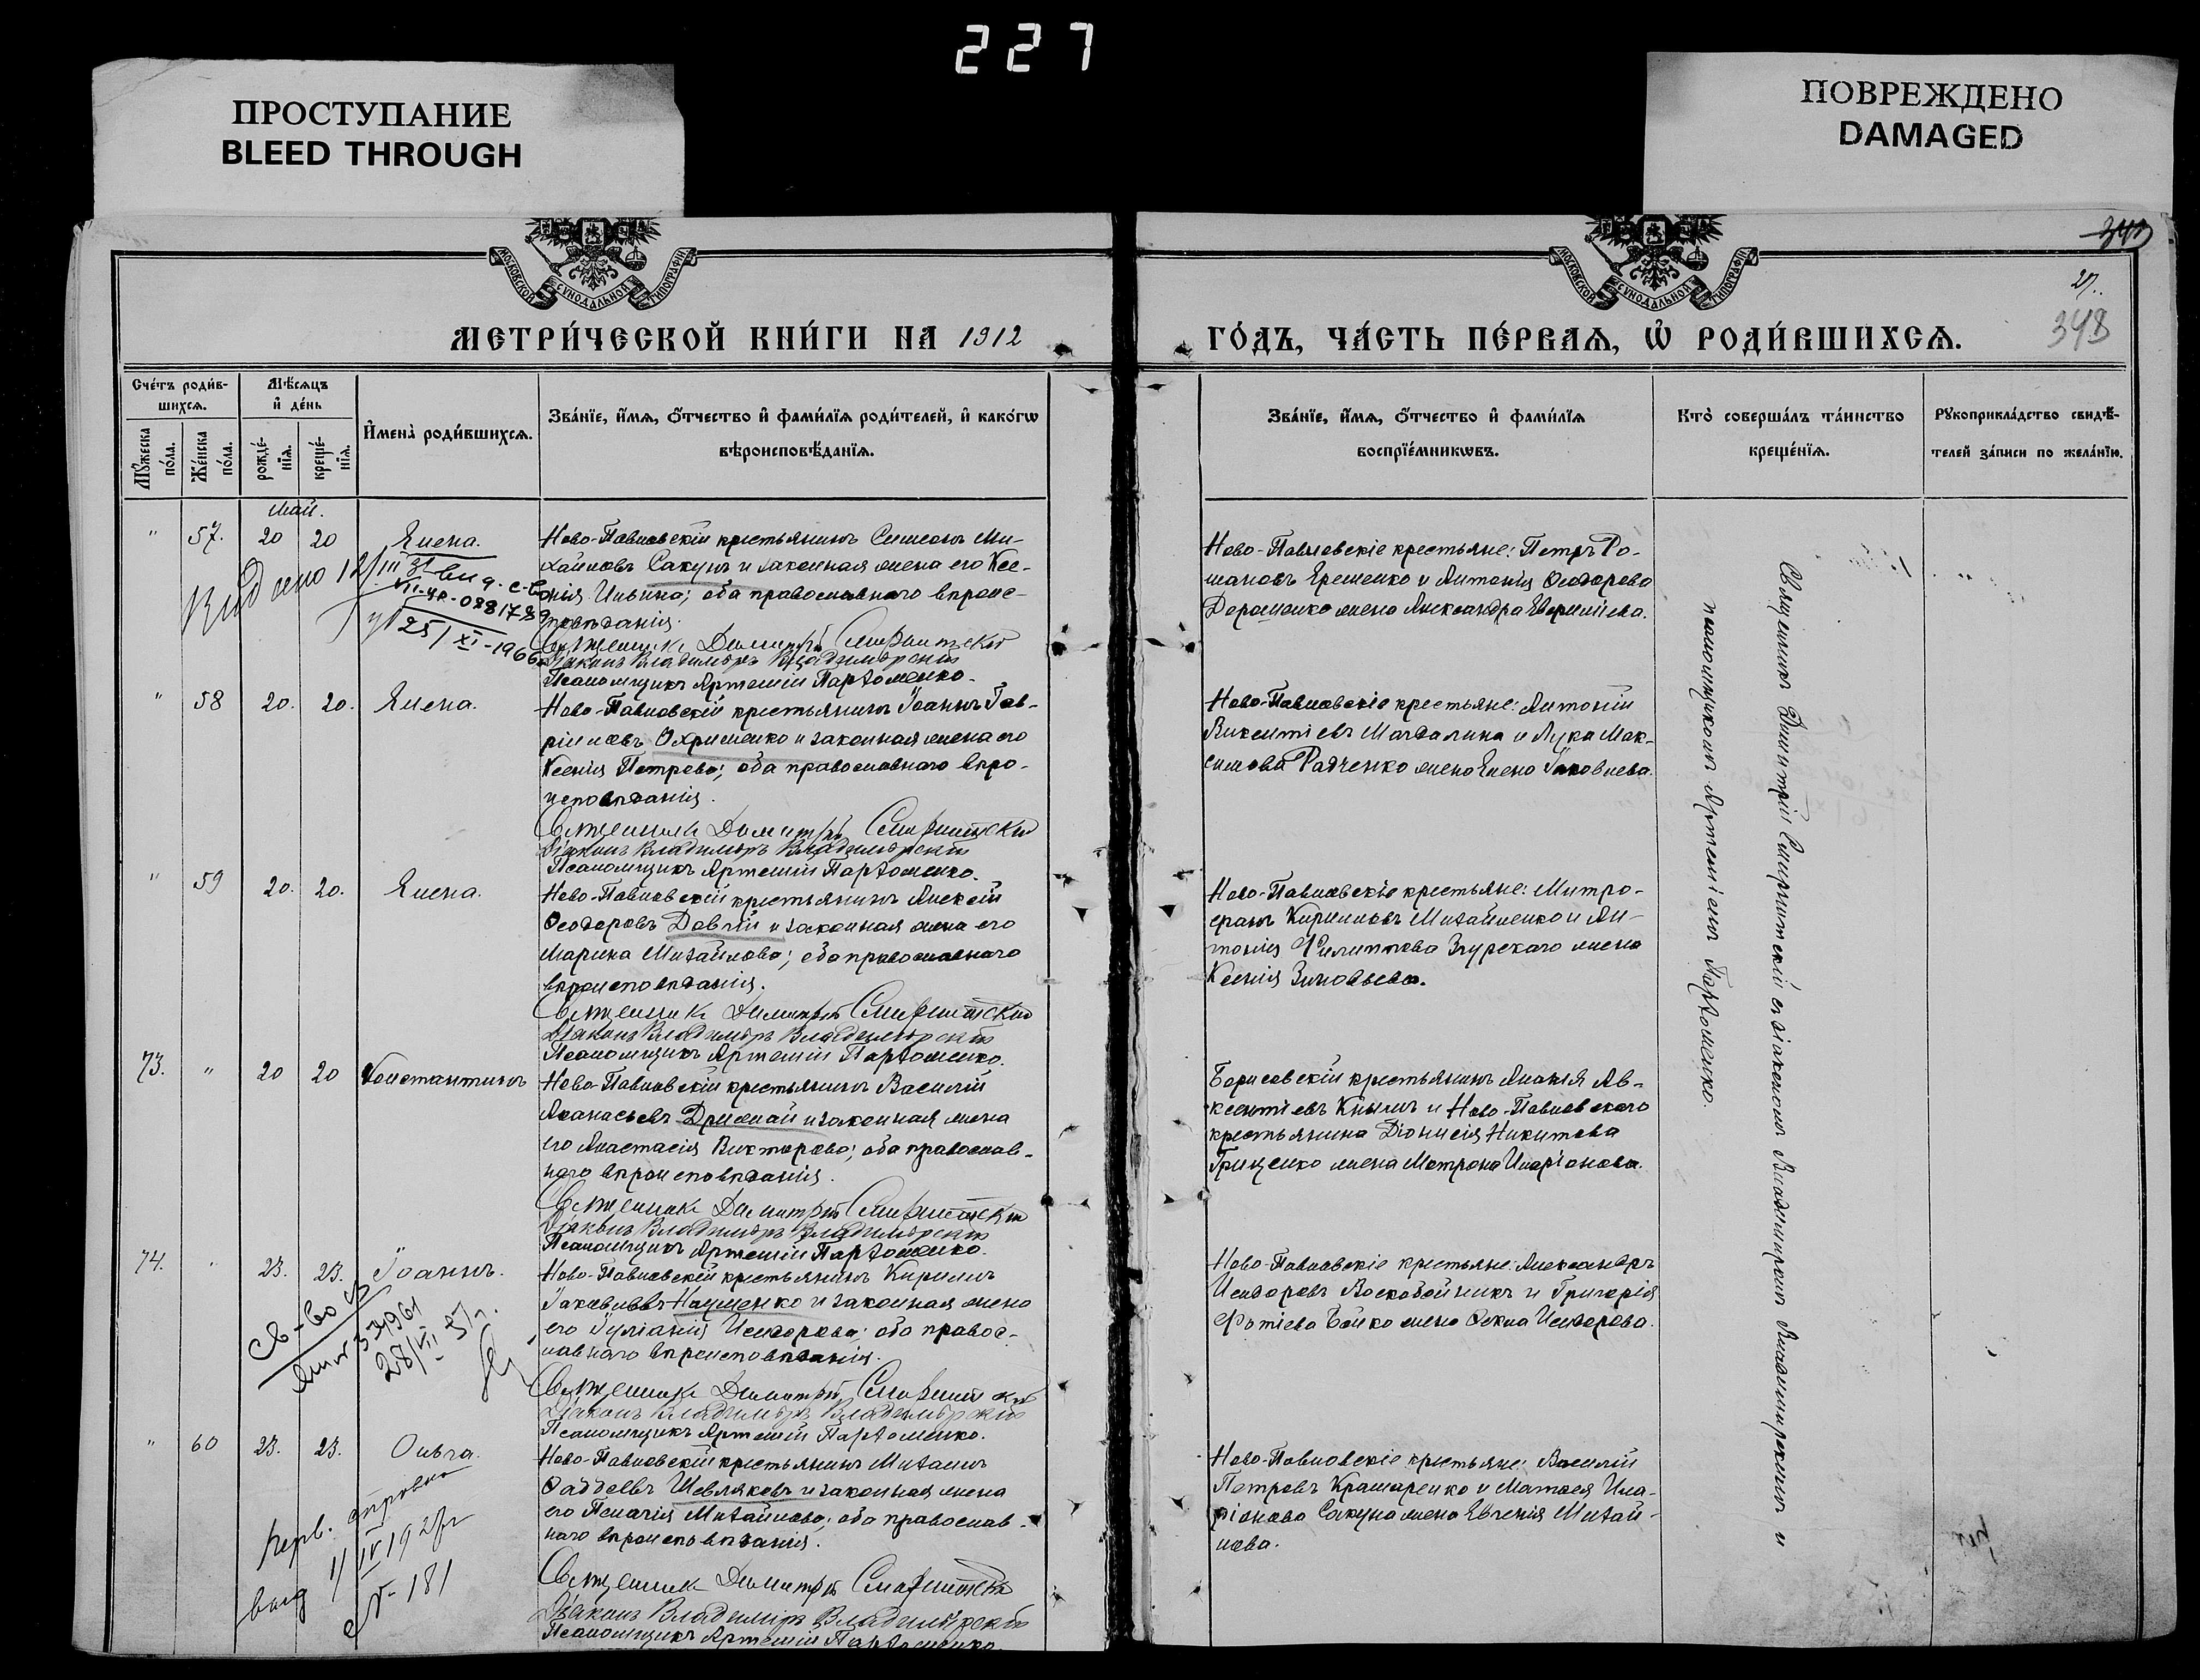 227
ПРОСТУПАНИЕ
BLEED THROUGH
ПОВРЕЖДЕНО
DAMAGED
МОСКОВСКОЙ СѴНОДАЛЬНОЙ ТИПОГРАФІИ
МОСКОВСКОЙ СѴНОДАЛЬНОЙ ТИПОГРАФІИ
27.
348
МЕТРИ́ЧЕСКОЙ КНИ́ГИ НА 1912
ГО́ДЪ, ЧА́СТЬ ПЕ́РВАѦ, Ѡ҆ РОДИ́ВШИХСѦ.
Сче́тъ роди́в-
шихсѧ.
Мꙋ́жеска
по́ла.
Же́нска
по́ла.
Мѣ́сѧцъ
и҆ де́нь
рожде́-
нїѧ.
креще́-
нїѧ.
И҆мена̀ роди́вшихсѧ.
Зва́нїе, и҆́мѧ, ѻ҆́тчество и҆ фами́лїѧ роди́телей, и҆ како́гѡ
вѣроисповѣ́данїѧ.
Зва́нїе, и҆́мѧ, ѻ҆́тчество и҆ фами́лїѧ
воспрїе́мникѡвъ.
Кто̀ соверша́лъ та́инство
креще́нїѧ.
Рꙋкоприкла́дство свидѣ́-
телей за́писи по жела́нїю.
Май.
" 57. 20 20 Елена.
Ново-Павловскій крестьянинъ Симеонъ Ми-
хаиловъ Сакунъ и законная жена его Ксе-
нія Ильина; оба православнаго вѣроис-
повѣданія.
Священникъ Димитрій Смирнитскій
Діаконъ Владиміръ Владимірскій
Псаломщикъ Артемій Пархоменко.
Ново-Павловскіе крестьяне: Петръ Ро-
мановъ Еременко и Антонія Ѳеодорова
Дорошенко жена Александра Евфиміева.
25/XI-1966
" 58 20. 20. Елена.
Ново-Павловскій крестьянинъ Іоаннъ Гав-
ріиловъ Охрименко и законная жена его
Ксенія Петрова; оба православнаго вѣро-
исповѣданія.
Священникъ Димитрій Смирнитскій
Діаконъ Владиміръ Владимірскій
Псаломщикъ Артемій Пархоменко.
Ново-Павловскіе крестьяне: Антоній
Викентіевъ Магдалина и Лука Мак-
симова Радченко жена Елена Іаковлева.
" 59 20. 20. Елена.
Ново-Павловскій крестьянинъ Алексій
Ѳеодоровъ Довгій и законная жена его
Марина Михайлова; оба православнаго
вѣроисповѣданія.
Священникъ Димитрій Смирнитскій
Діаконъ Владиміръ Владимірскій
Псаломщикъ Артемій Пархоменко.
Ново-Павловскіе крестьяне: Митро-
фанъ Кирилловъ Михайленко и Ан-
тонія Филиппова Згурскаго жена
Ксенія Зиновьева.
73. " 20 20 Константинъ
Ново-Павловскій крестьянинъ Василій
Аѳанасьевъ Дримай и законная жена
его Анастасія Викторова; оба православ-
наго вѣроисповѣданія.
Священникъ Димитрій Смирнитскій
Діаконъ Владиміръ Владимірскій
Псаломщикъ Артемій Пархоменко.
Борисовскій крестьянинъ Ананія Ав-
ксентіевъ Кнышъ и Ново-Павловскаго
крестьянина Діонисія Никитова
Гриценко жена Матрона Иларіонова.
74. " 23. 23. Іоаннъ.
Ново-Павловскій крестьянинъ Кириллъ
Іаковлевъ Науменко и законная жена
его Іуліанія Исидорова; оба правос-
лавнаго вѣроисповѣданія.
Священникъ Димитрій Смирнитскій
Діаконъ Владиміръ Владимірскій
Псаломщикъ Артемій Пархоменко.
Ново-Павловскіе крестьяне: Александръ
Исидоровъ Воскобойникъ и Григорія
Фотіева Бойко жена Ѳекла Исидорова.
Св-во
28/VII 57г.
" 60 23. 23. Ольга.
Ново-Павловскій крестьянинъ Михаилъ
Ѳаддеевъ Шевляковъ и законная жена
его Пелагія Михайлова; оба православ-
наго вѣроисповѣданія.
Священникъ Димитрій Смирнитскій
Діаконъ Владиміръ Владимірскій
Псаломщикъ Артемій Пархоменко
Ново-Павловскіе крестьяне: Василій
Петровъ Крамаренко и Матѳея Ила-
ріонова Сакуна жена Евгенія Михай-
лова.
выд 1/IV 192
№ 181
Священникъ Димитрій Смирнитскій съ діакономъ Владиміромъ Владимірскимъ и
псаломщикомъ Артеміемъ Пархоменко.